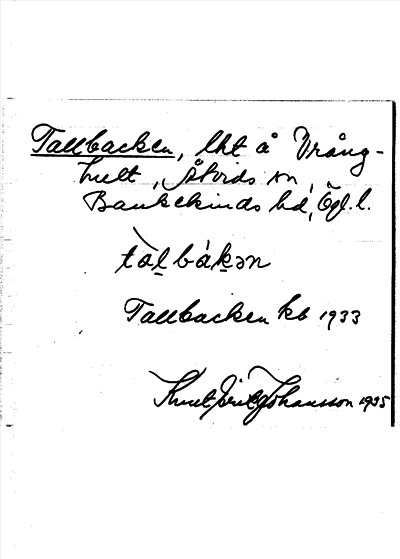 Tallbacken, lht å Vrång-
hult, Åtvids sn,
Bankekinds hd, Ögl. l.
tàl̠bák̠ən
Tallbacken kb 1933
Knut Eric Johansson 1935